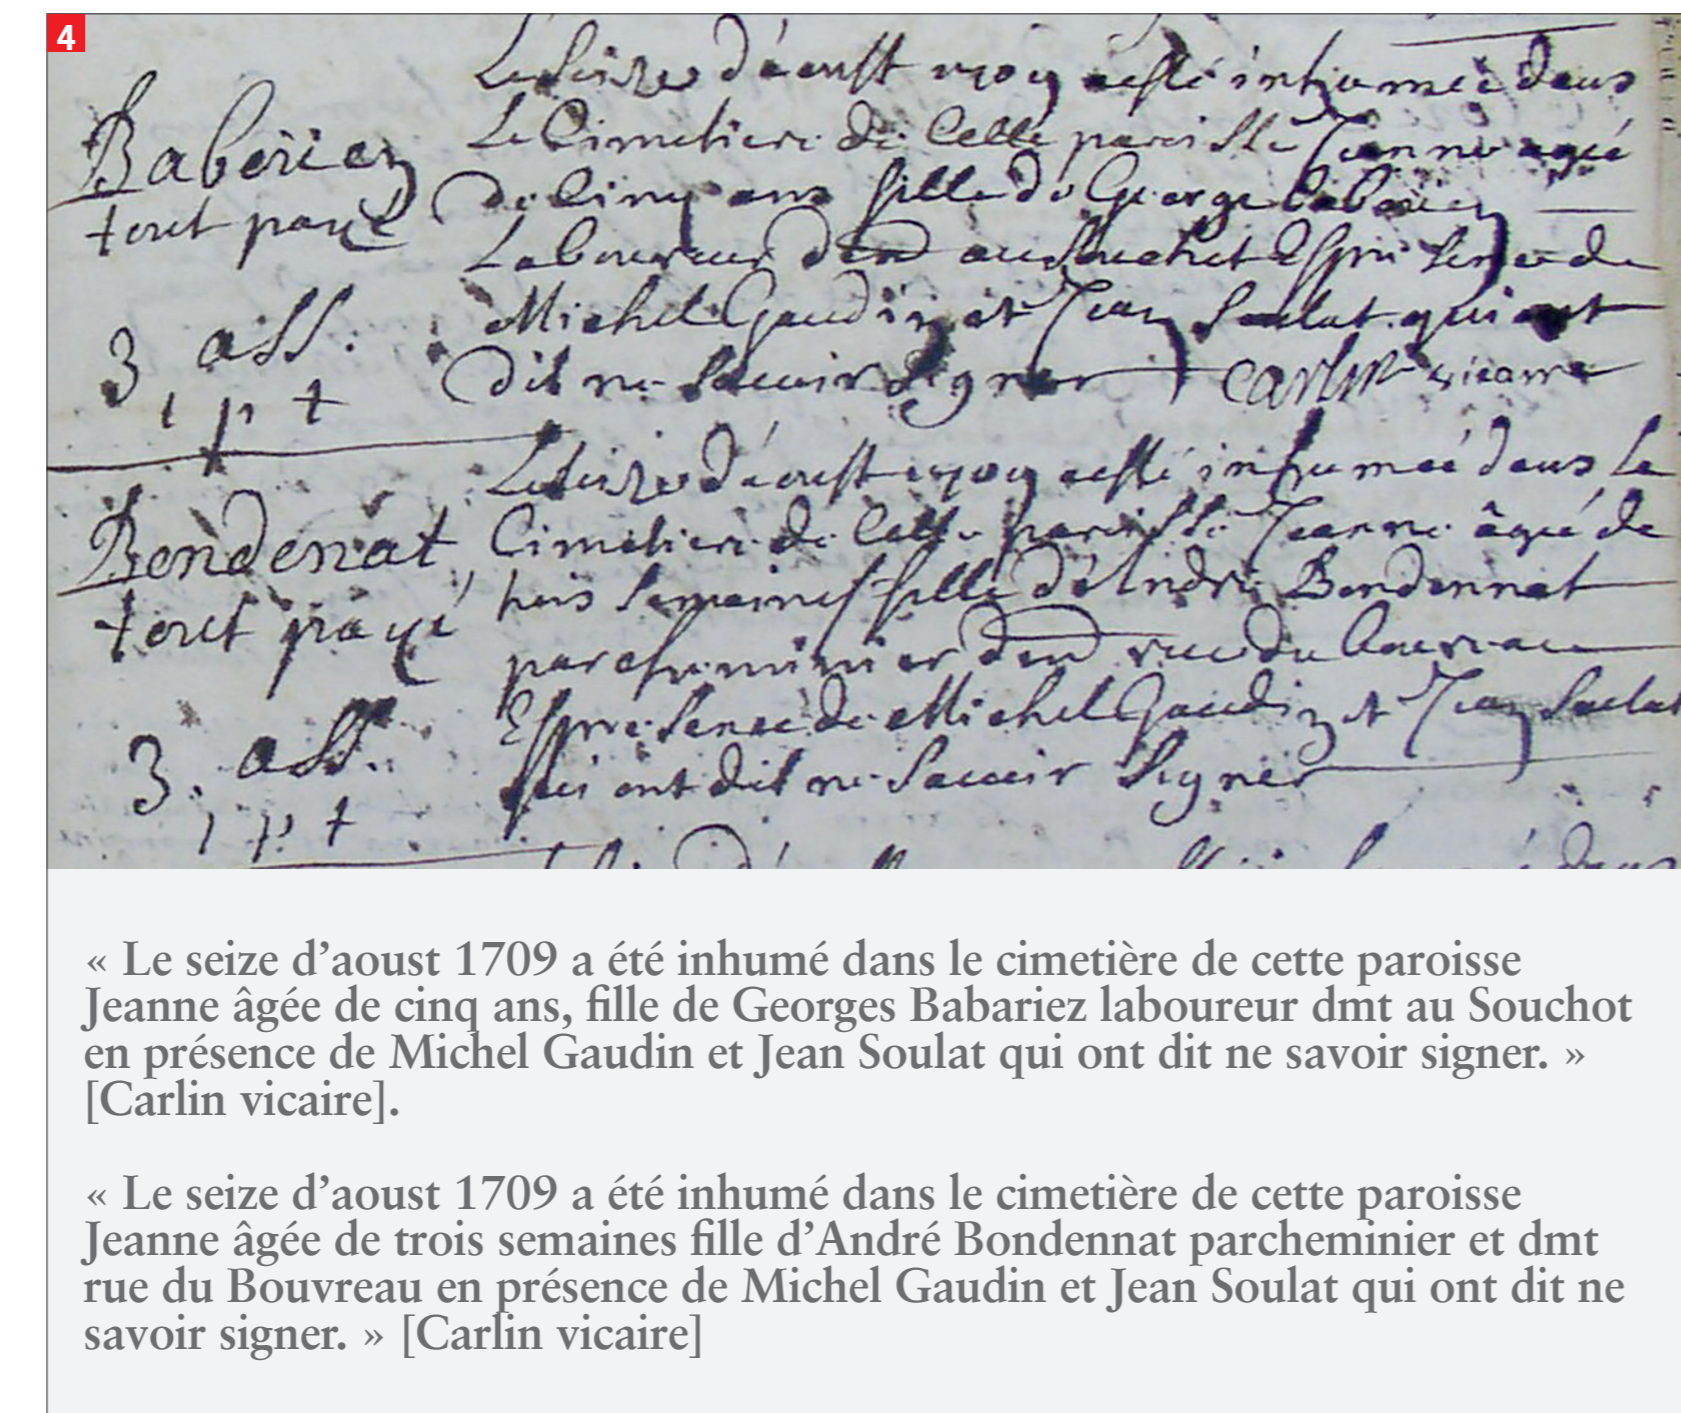 4
Le seize d'aoust 1709 a esté inhumée dans
Le Cimetiere de Cette paroisse Jeanne agée
Baboriez
de Cinq ans fille de George baboriez
tout payé
Laboureur dmt au Souchet En presence de
Michel Gaudin et Jean Soulat qui ont
3 ass.
dit ne Scavoir Signer Carlin vicaire
1 p t
Le seize d'aoust 1709 a esté inhumée dans Le
Bondenat
Cimetiere de Cette paroisse Jeanne âgée de
trois Semaines fille d'André Bondennat
tout payé
parcheminier dmt rue du bouvreau
En presence de Michel Gaudin et Jean Soulat
3. ass.
qui ont dit ne Scavoir Signer
1 p. t
« Le seize d’aoust 1709 a été inhumé dans le cimetière de cette paroisse
Jeanne âgée de cinq ans, fille de Georges Babariez laboureur dmt au Souchot
en présence de Michel Gaudin et Jean Soulat qui ont dit ne savoir signer. »
[Carlin vicaire].
« Le seize d’aoust 1709 a été inhumé dans le cimetière de cette paroisse
Jeanne âgée de trois semaines fille d’André Bondennat parcheminier et dmt
rue du Bouvreau en présence de Michel Gaudin et Jean Soulat qui ont dit ne
savoir signer. » [Carlin vicaire]